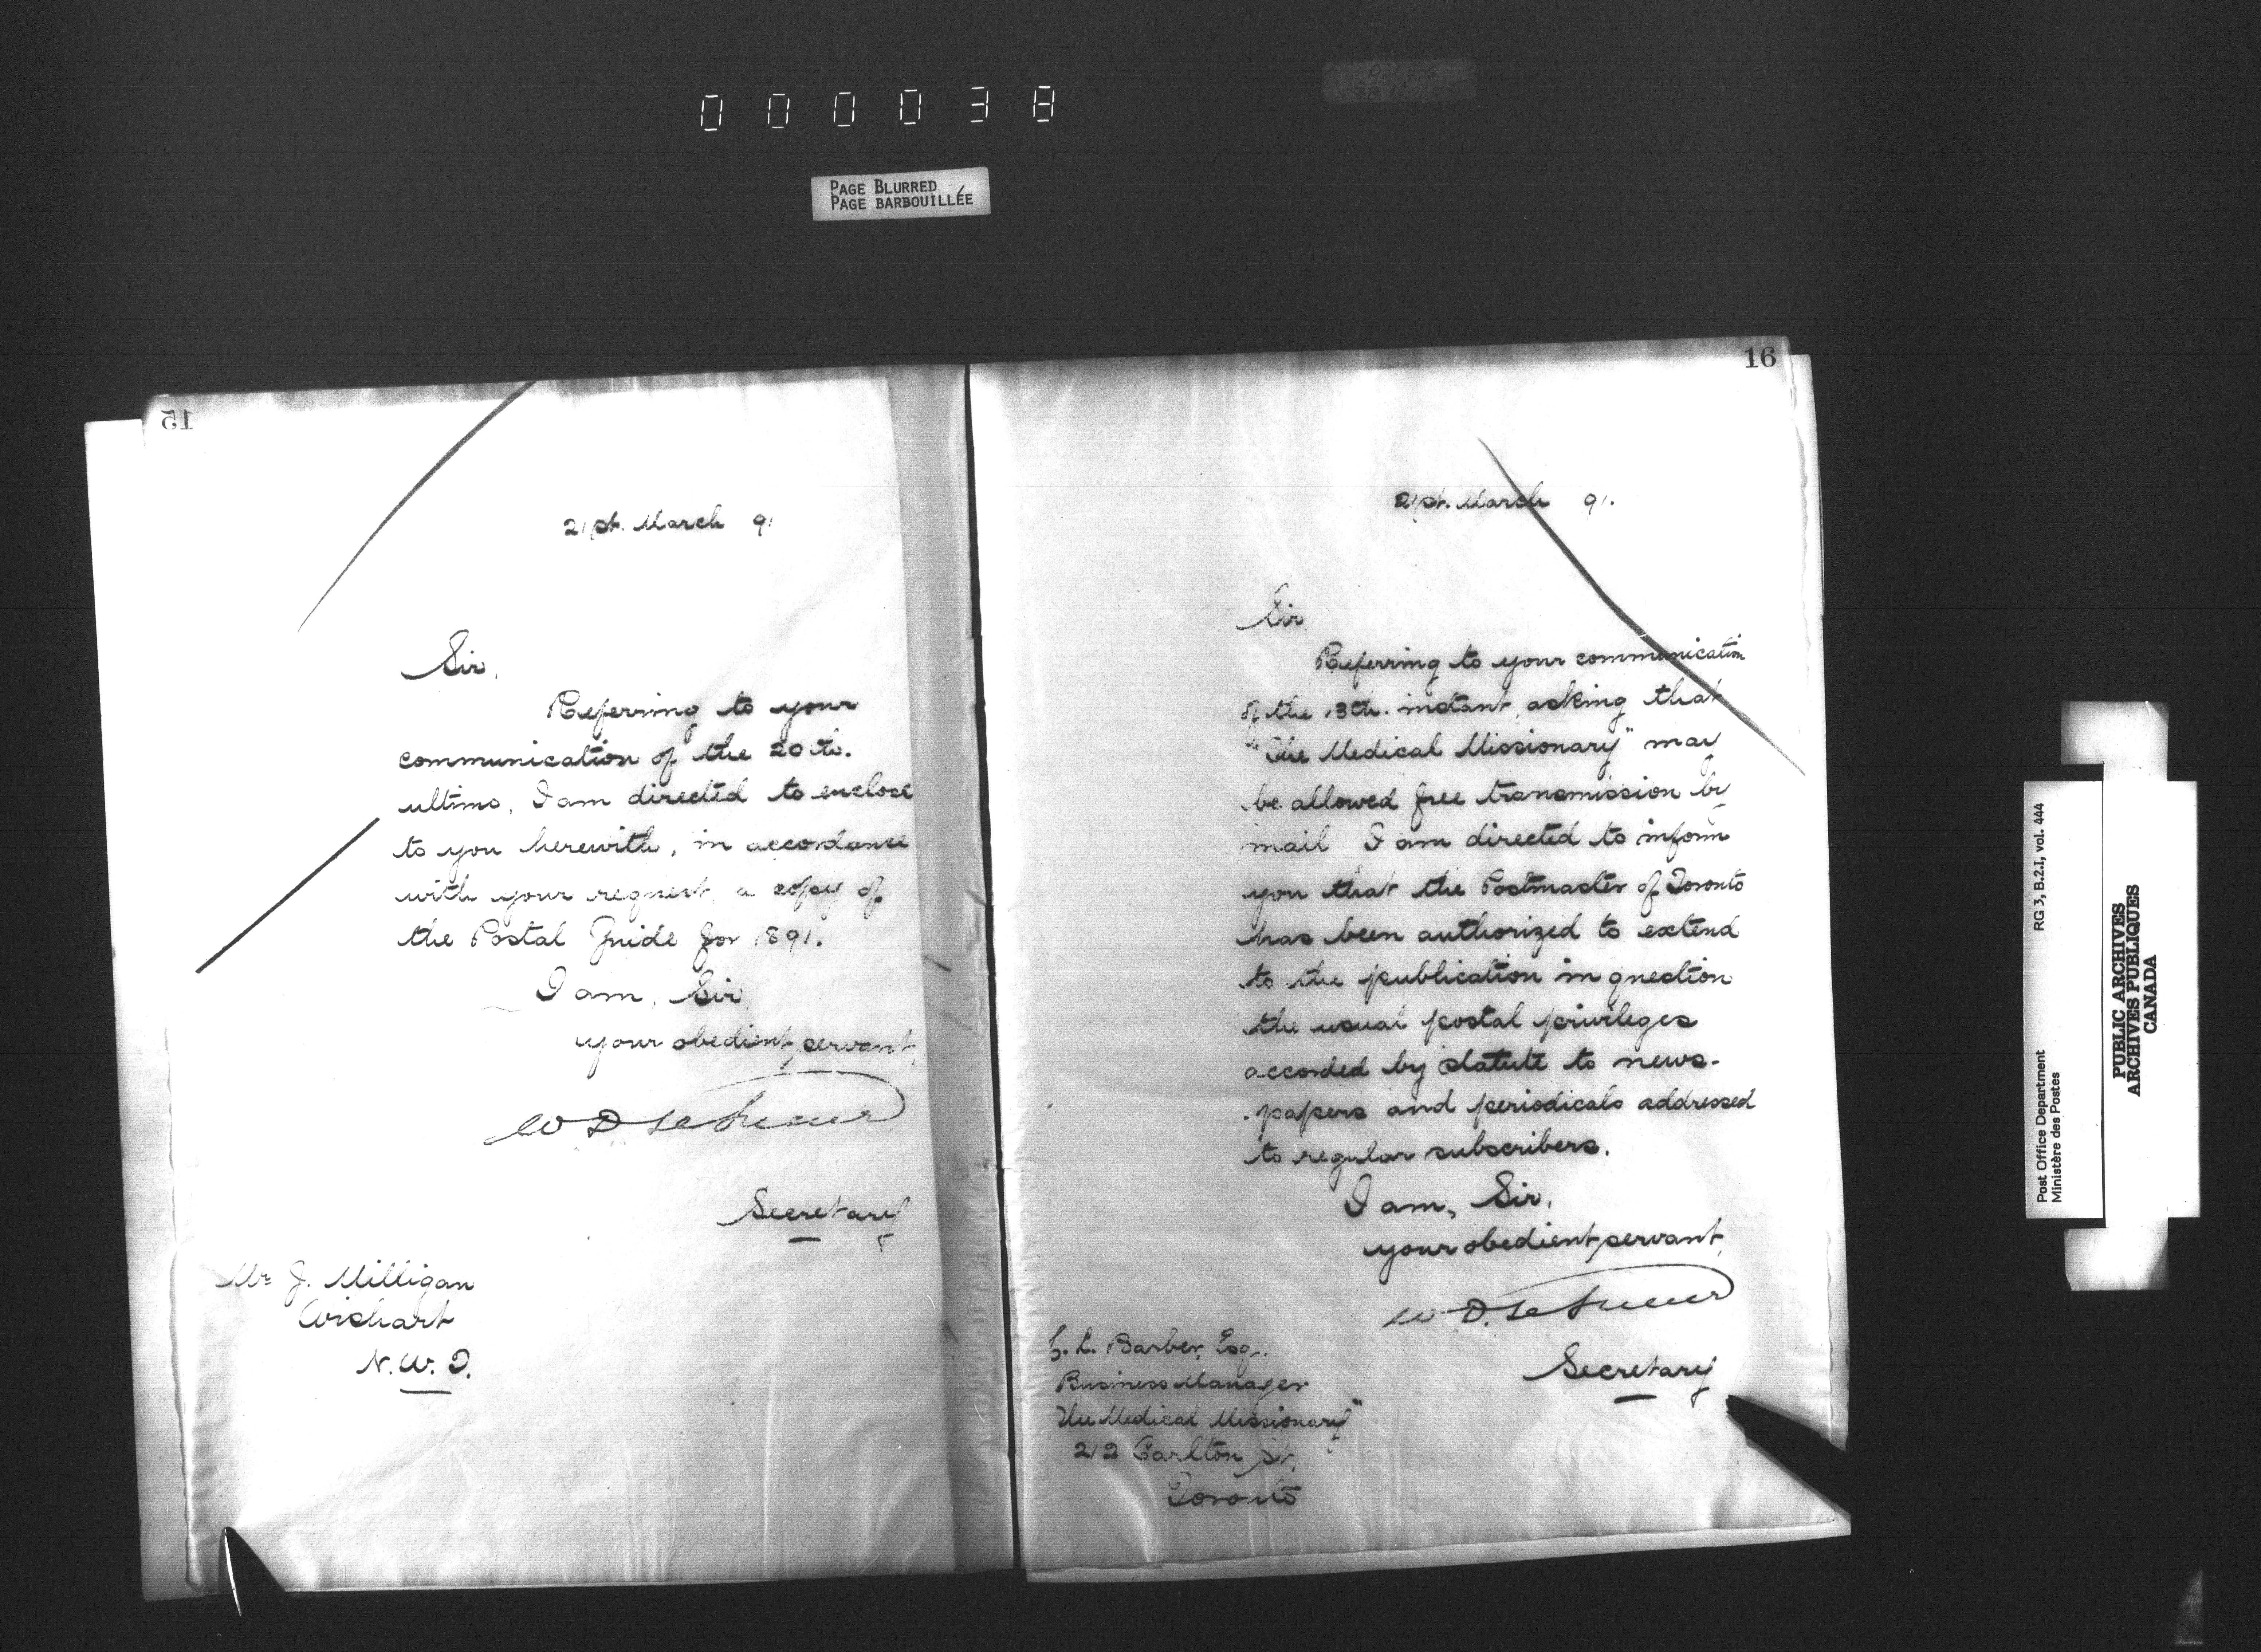 000038
PAGE BLURRED
PAGE BARBOUILLÉE
15
21st. March 91
Sir,
Referring to your
communication of the 20th.
ultimo, I am directed to enclose
to you herewith, in accordance
with your request, a copy of
the Postal Guide for 1891.
I am, Sir,
your obedient servant,
W D LeSueur
Secretary
Mr J. Milligan
Wishart
N.W.T.
16
21st. March 91.
Sir,
Referring to your communication
of the 13th. instant, asking that
"The Medical Missionary" may
be allowed free transmission by
mail I am directed to inform
you that the Postmaster of Toronto
has been authorized to extend
to the publication in question
the usual postal privileges
accorded by statute to news-
-papers and periodicals addressed
to regular subscribers.
I am, Sir,
your obedient servant,
W D. LeSueur
Secretary
L. Barber, Esq.
Business Manager
The Medical Missionary"
212 Carlton St.
Toronto
Post Office Department RG 3, B.2.I, vol. 444
Ministère des Postes
PUBLIC ARCHIVES
ARCHIVES PUBLIQUES
CANADA